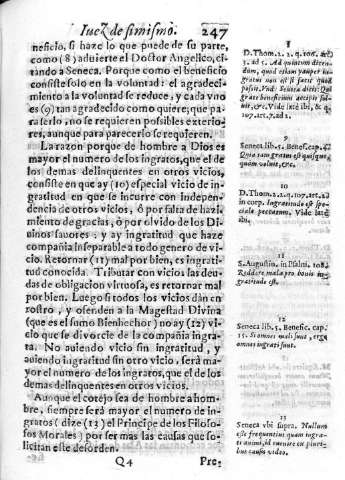 Iuez de si mismo. 247
neficio, si haze lo que puede de su parte,
como (8) aduierte el Doctor Angelico, ci-
tando a Seneca. Porque como el beneficio
consiste solo en la voluntad: el agradeci-
miento a la voluntad se reduce, y cada vno
es (9) tan agradecido como quiere; que pa-
raserlo, no se requieren possibles exterio-
res, aunque para parecerlo se requieren.
La razon porque de hombre a Dios es
mayor el numero de los ingratos, que el de
los demas delinquentes en otros vicios,
consiste en que ay (10) especial vicio de in-
gratitud en que se incurre con indepen-
dencia de otros vicios, ò por falta de hazi-
miento de gracias, ò por olvido de los Di-
uinos fauores: y ay ingratitud que haze
compañia inseparable a todo genero de vi-
cio. Retornar (11) mal por bien, es ingrati-
tud conocida. Tributar con vicios las deu-
das de obligacion virtuosa, es retornar mal
por bien. Luego si todos los vicios dàn en
rostro, y ofenden a la Magestad Divina
(que es el sumo Bienhechor) no ay (12) vi-
cio que se divorcie de la compañia ingra-
ta. No auiendo vicio sin ingratitud, y
auiendo ingratitud sin otro vicio, serà ma-
yor el numero de los ingratos, que el de los
demas delinquentes en otros vicios.
Aunque el cotejo sea de hombre a hom-
bre, siempre serà mayor el numero de in-
gratos (dize (13) el Principe de los Filoso-
fos Morales) por ser mas las causas que so-
licitan este desorden.
Q4 Pre-
8
D. Thom. 2. 2. q. 106. art.
3. ad 5. Ad quintum dicen-
dum, quod etiam
gratus non est si facit quod
possit. Vnde Seneca dicit: Qui
grate beneficium accepit sol-
uit, &c. Vide ibi, &
107. art. 1. ad 2.
9
Seneca lib. 5. Benef. cap. 4.
Quia tam gratus est quisque
quàm voluit.
10
D. Thom. 2. 2. q. 107. art. 2.
in corp. Ingratitudo est spe-
ciale peccatum. Vide
ibi.
11
S. Augustin. in Psalm. 108.
Reddere mala pro bonis in-
gratitudo est.
12
Seneca lib. 5. Benefic. cap.
15. Si omnes mali sunt, ergo
omnes ingrati sunt.
13
Seneca vbi supra. Nullum
est frequentius quam ingra-
ti animi, id euenire ex pluri-
bus causis video.